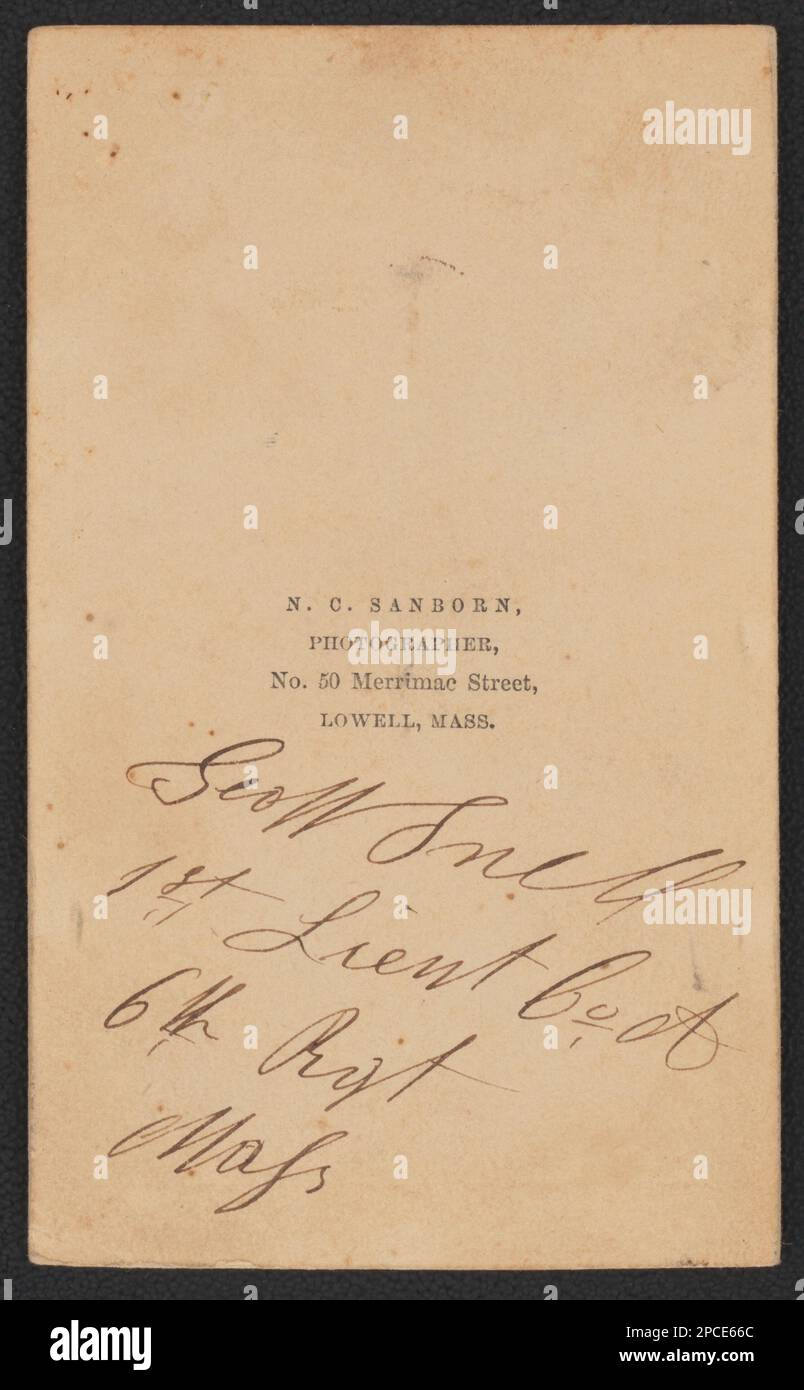 N. C. SANBORN,
PHOTOGRAPHER,
No. 50 Merrimac Street,
LOWELL, MASS.
Scott Snell
1st Lieut Co A
6th Rgt
Mass
alamy
alamy
a alamy
Image ID: 2PCE66C
www.alamy.com